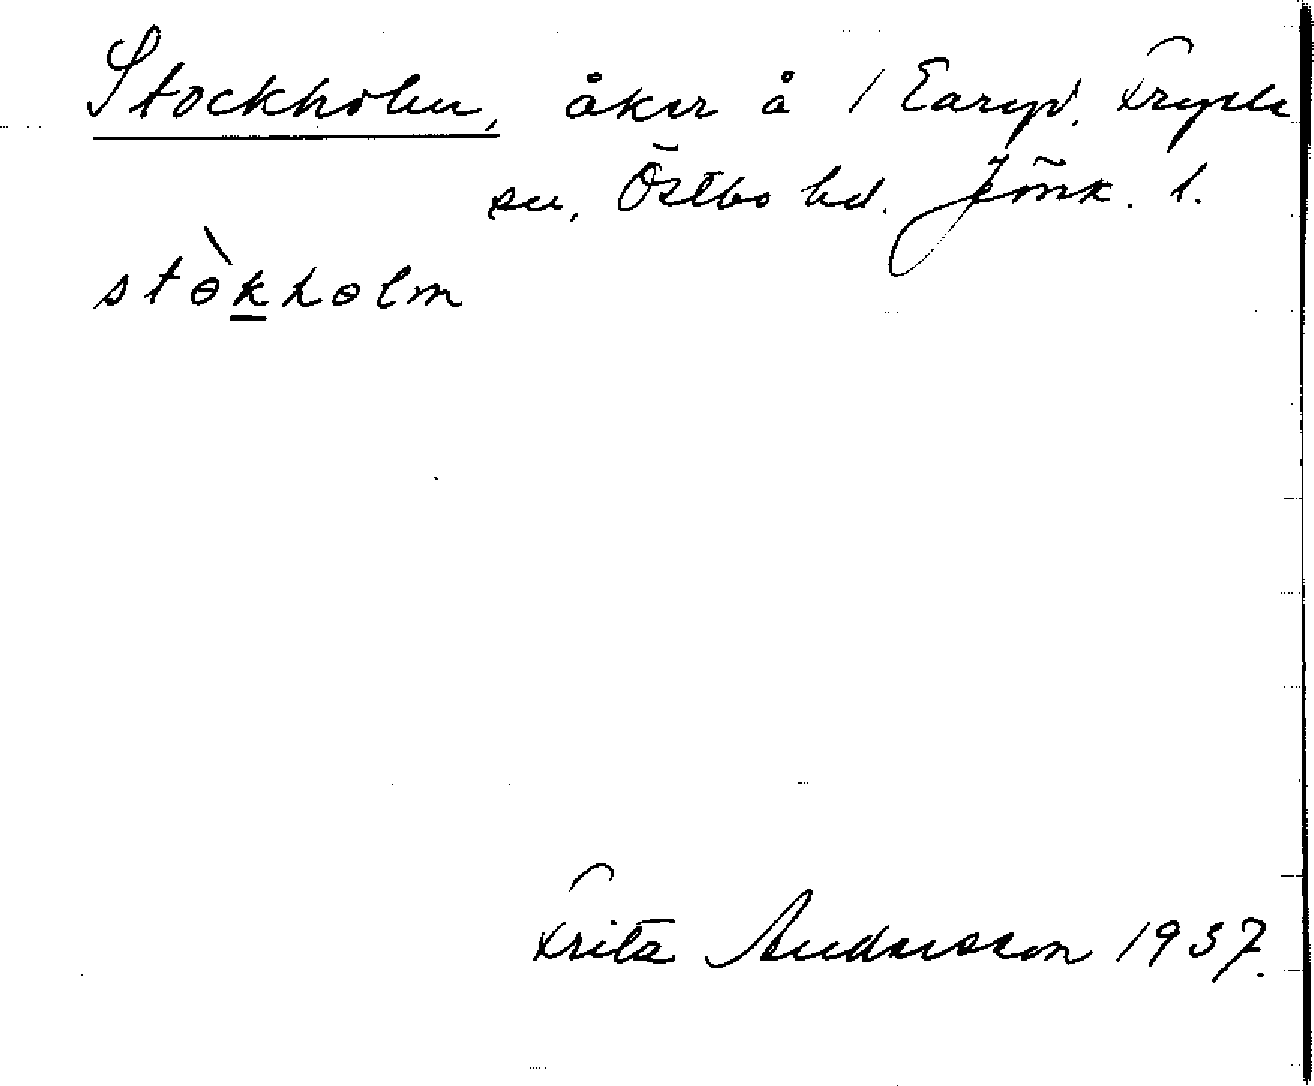 Stockholm, åker å 1 Earyd. Fryele
sn, Östbo hd. Jönk. l.
stòkholm
Fritz Andersson 1937.